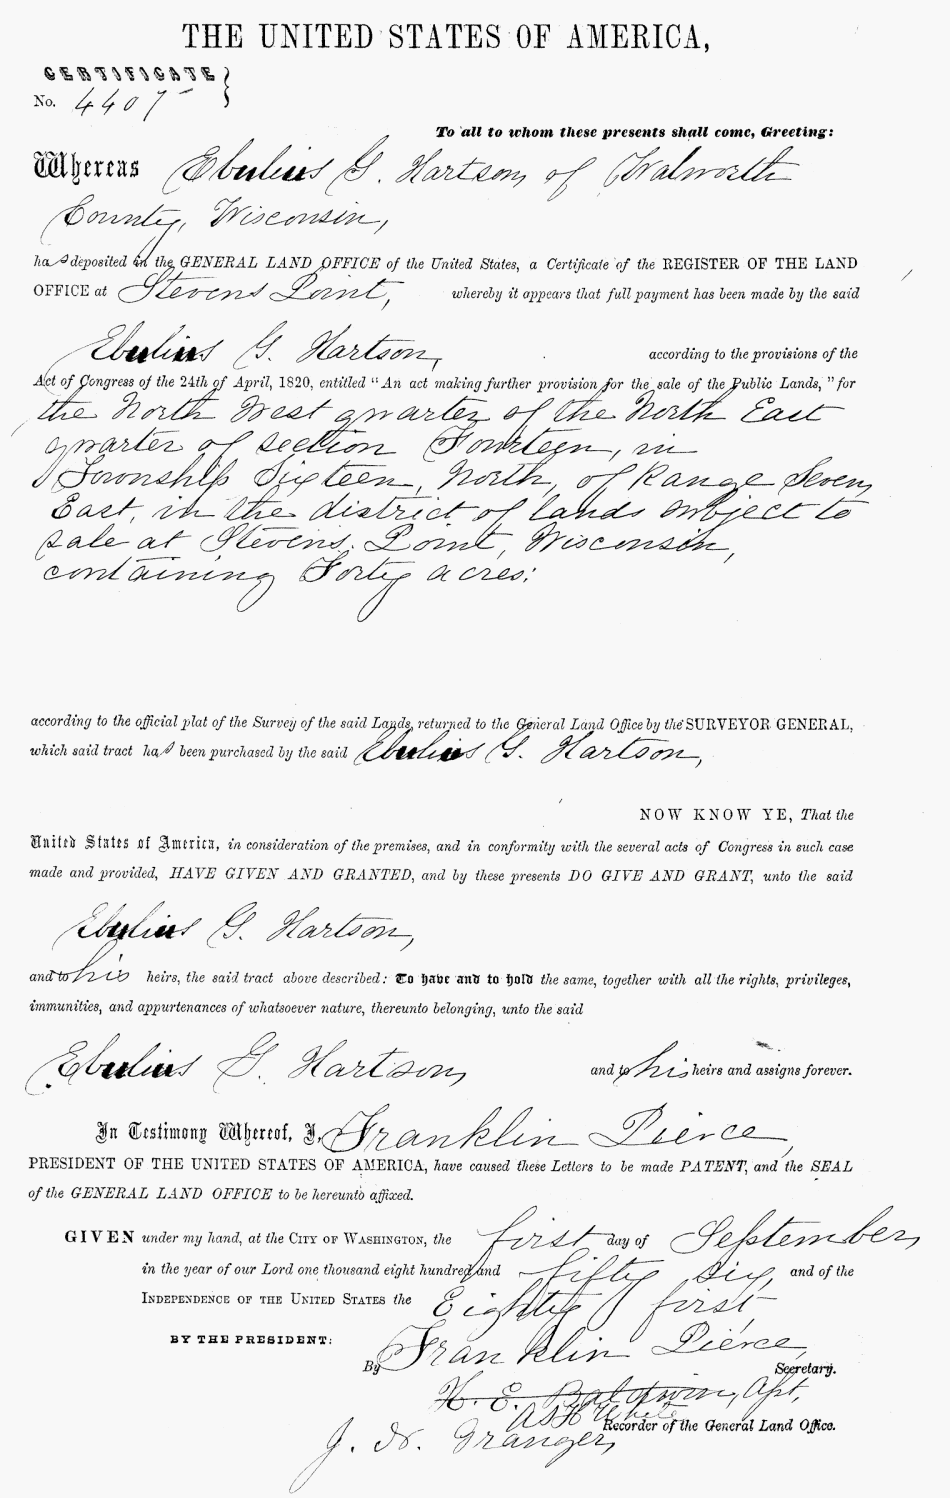 THE UNITED STATES OF AMERICA,
CERTIFICATE
No. 4407
To all to whom these presents shall come, Greeting:
Whereas Ebulius G. Hartson, of Walworth
County, Wisconsin,
has deposited in the GENERAL LAND OFFICE of the United States, a Certificate of the REGISTER OF THE LAND
OFFICE at Stevens Point, whereby it appears that full payment has been made by the said
Ebulius G. Hartson, according to the provisions of the
Act of Congress of the 24th of April, 1820, entitled "An act making further provision for the sale of the Public Lands," for
the North West quarter of the North East
quarter of section Fourteen, in
Township Sixteen, North, of Range Seven,
East, in the district of lands subject to
sale at Stevens Point, Wisconsin,
containing Forty acres:
according to the official plat of the Survey of the said Lands, returned to the General Land Office by the SURVEYOR GENERAL,
which said tract has been purchased by the said Ebulius G. Hartson,
NOW KNOW YE, That the
United States of America, in consideration of the premises, and in conformity with the several acts of Congress in such case
made and provided, HAVE GIVEN AND GRANTED, and by these presents DO GIVE AND GRANT, unto the said
Ebulius G. Hartson,
and to his heirs, the said tract above described: To have and to hold the same, together with all the rights, privileges,
immunities, and appurtenances of whatsoever nature, thereunto belonging, unto the said
Ebulius G. Hartson, and to his heirs and assigns forever.
In Testimony Whereof, I, Franklin Pierce,
PRESIDENT OF THE UNITED STATES OF AMERICA, have caused these Letters to be made PATENT, and the SEAL
of the GENERAL LAND OFFICE to be hereunto affixed.
GIVEN under my hand, at the CITY OF WASHINGTON, the first day of September,
in the year of our Lord one thousand eight hundred and fifty six, and of the
INDEPENDENCE OF THE UNITED STATES the Eighty first
BY THE PRESIDENT: Franklin Pierce,
By Secretary.
H. E. Baldwin, Apt,
Recorder of the General Land Office.
J. N. Granger,